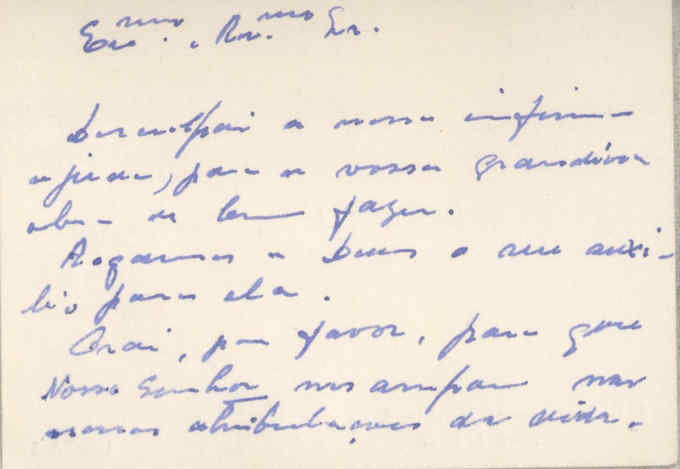 Exmo. e Rvmo. Sr.
Desculpai a nossa infima
ajuda, para a vossa grandiosa
obra de bem fazer.
Rogamos a Deus o seu auxi-
lio para ela.
Orai, por favor, para que
Nosso Senhor nos ampare nas
nossas atribulações da vida.